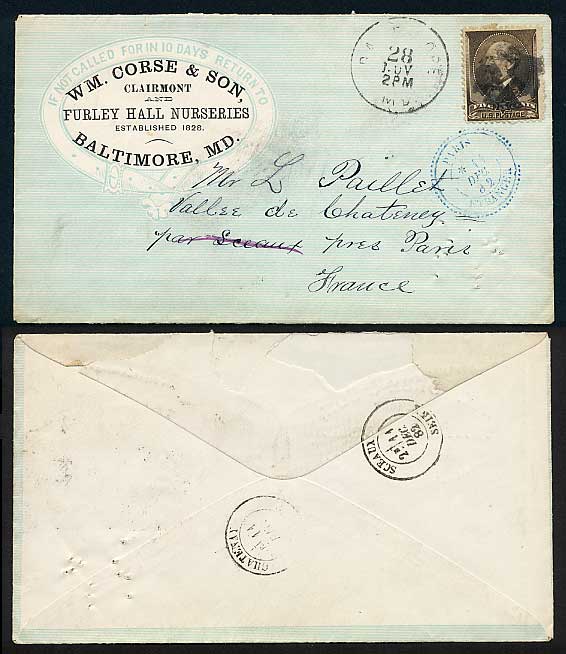 IF NOT CALLED FOR IN 10 DAYS RETURN TO
WM. CORSE & SON,
CLAIRMONT
AND
FURLEY HALL NURSERIES
ESTABLISHED 1828.
BALTIMORE, MD.
28
NOV
2PM
MD
U.S. POSTAGE
PARIS
11
DEC
82
ETRANGER
Mr L Paillet
Vallee de Chateney
par Sceaux pres Paris
France
SCEAUX
2E
11
DEC
82
SEINE
CHATENAY
11